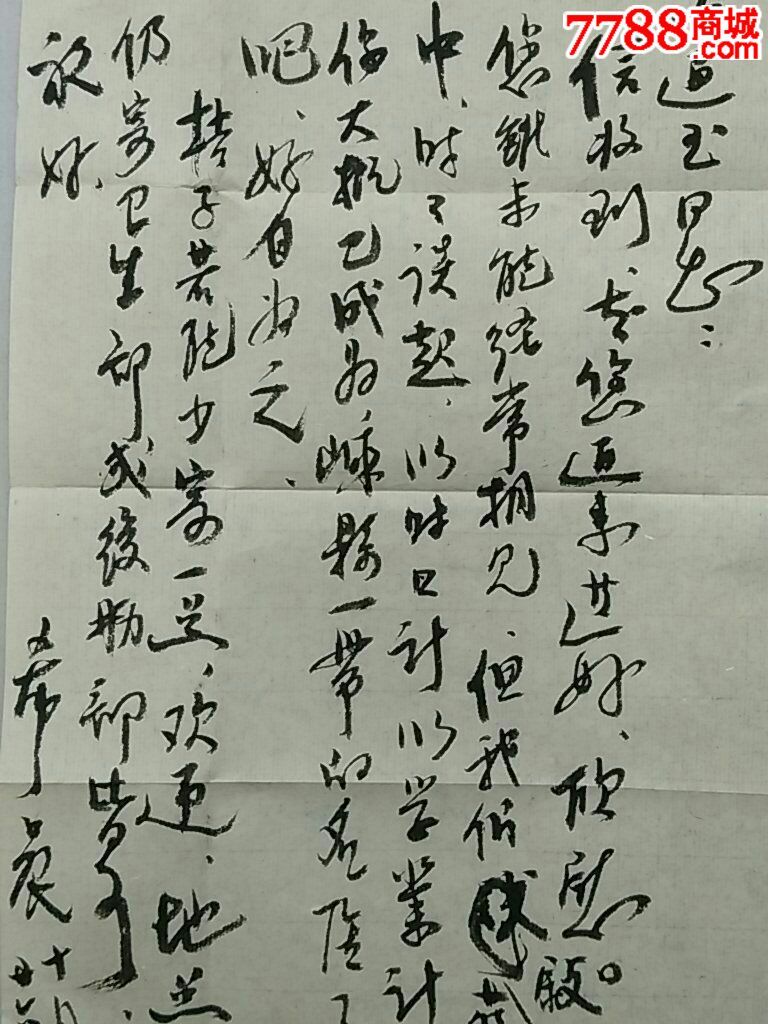 7788商城
.com
玉同志：
信收到，知您近来甚好、欣慰。
您虽未能经常相见、但我们
中、时々谈起、以时日计以学业计
你大概已成为嵊縣一带的名医了
吧、好自为之、
桔子若能少寄一些、欢迎、地点
仍寄卫生部或後勤部皆可、
祝好、
希晨